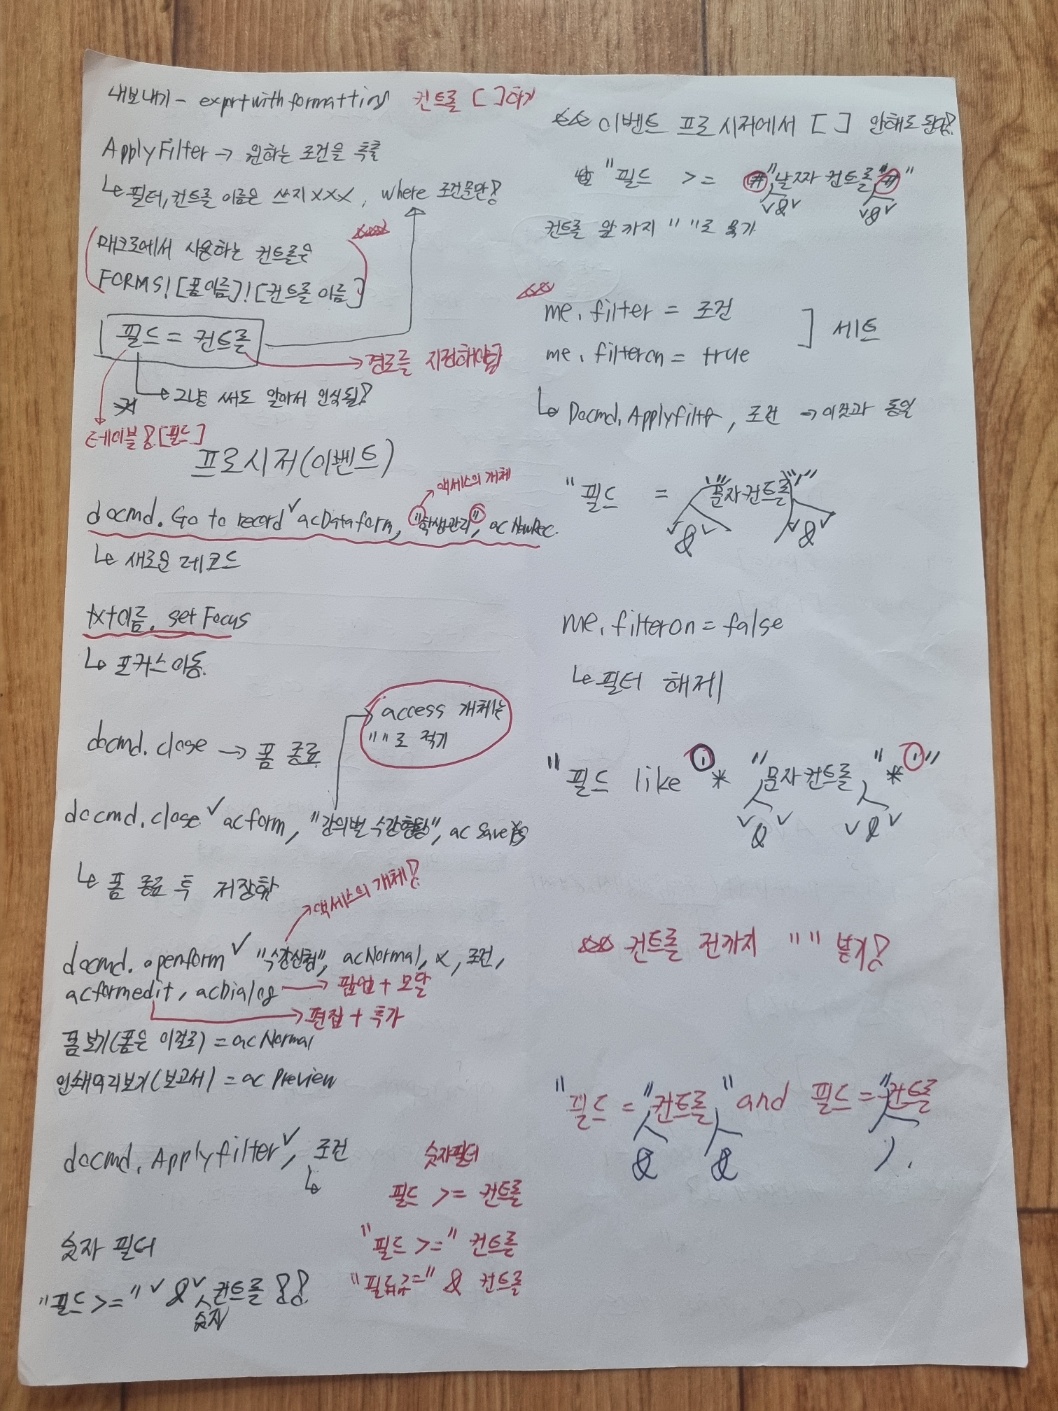 내보내기 - exprtwithformatting 컨트롤 [ ]하기
ApplyFilter → 원하는 조건을 추출
↳ 필터, 컨트롤 이름은 쓰지XXX, where 조건문만!
매크로에서 사용하는 컨트롤은
FORMS![폼이름]![컨트롤 이름]
필드 = 컨트롤
→ 경로를 지정해야함
→ 그냥 써도 알아서 인식됨!
테이블!![필드]
프로시저(이벤트)
액세스의 개체
docmd. Go to record ✓ acDataform, "학생관리", acNewRec.
↳ 새로운 레코드
txt이름. set Focus
↳ 포커스이동.
access 개체는
" "로 적기
docmd.close → 폼 종료
docmd.close ✓ acform, "강의별 수강현황", ac saveYes
↳ 폼 종료 후 저장함
액세스의 개체!
docmd. openform ✓ "수강신청", acNormal, x, 조건,
acformedit, acDialog → 팝업 + 모달
→ 편집 + 추가
폼보기(폼은 이걸로) = acNormal
인쇄미리보기(보고서) = ac Preview
docmd. Applyfilter ✓, 조건
↳
숫자필터
필드 >= 컨트롤
"필드 >=" 컨트롤
"필드>=" & 컨트롤
숫자 필터
"필드 >=" ✓ & ✓ 컨트롤 !!
숫자
이벤트 프로시저에서 [ ] 안해도 된다!
"필드 >= # "날짜 컨트롤" # "
✓&✓ ✓&✓
컨트롤 앞까지 " "로 묶기
me. filter = 조건
me. filteron = true
] 세트
↳ Docmd. Applyfilter, 조건 → 이것과 동일
"필드 = '"문자컨트롤"'"
✓&✓ ✓&✓
me. filteron = false
↳ 필터 해제
"필드 like '* "문자컨트롤 "*'"
✓&✓ ✓&✓
컨트롤 전까지 " " 붙기!
"필드 = "컨트롤 " and 필드 = "컨트롤
& &